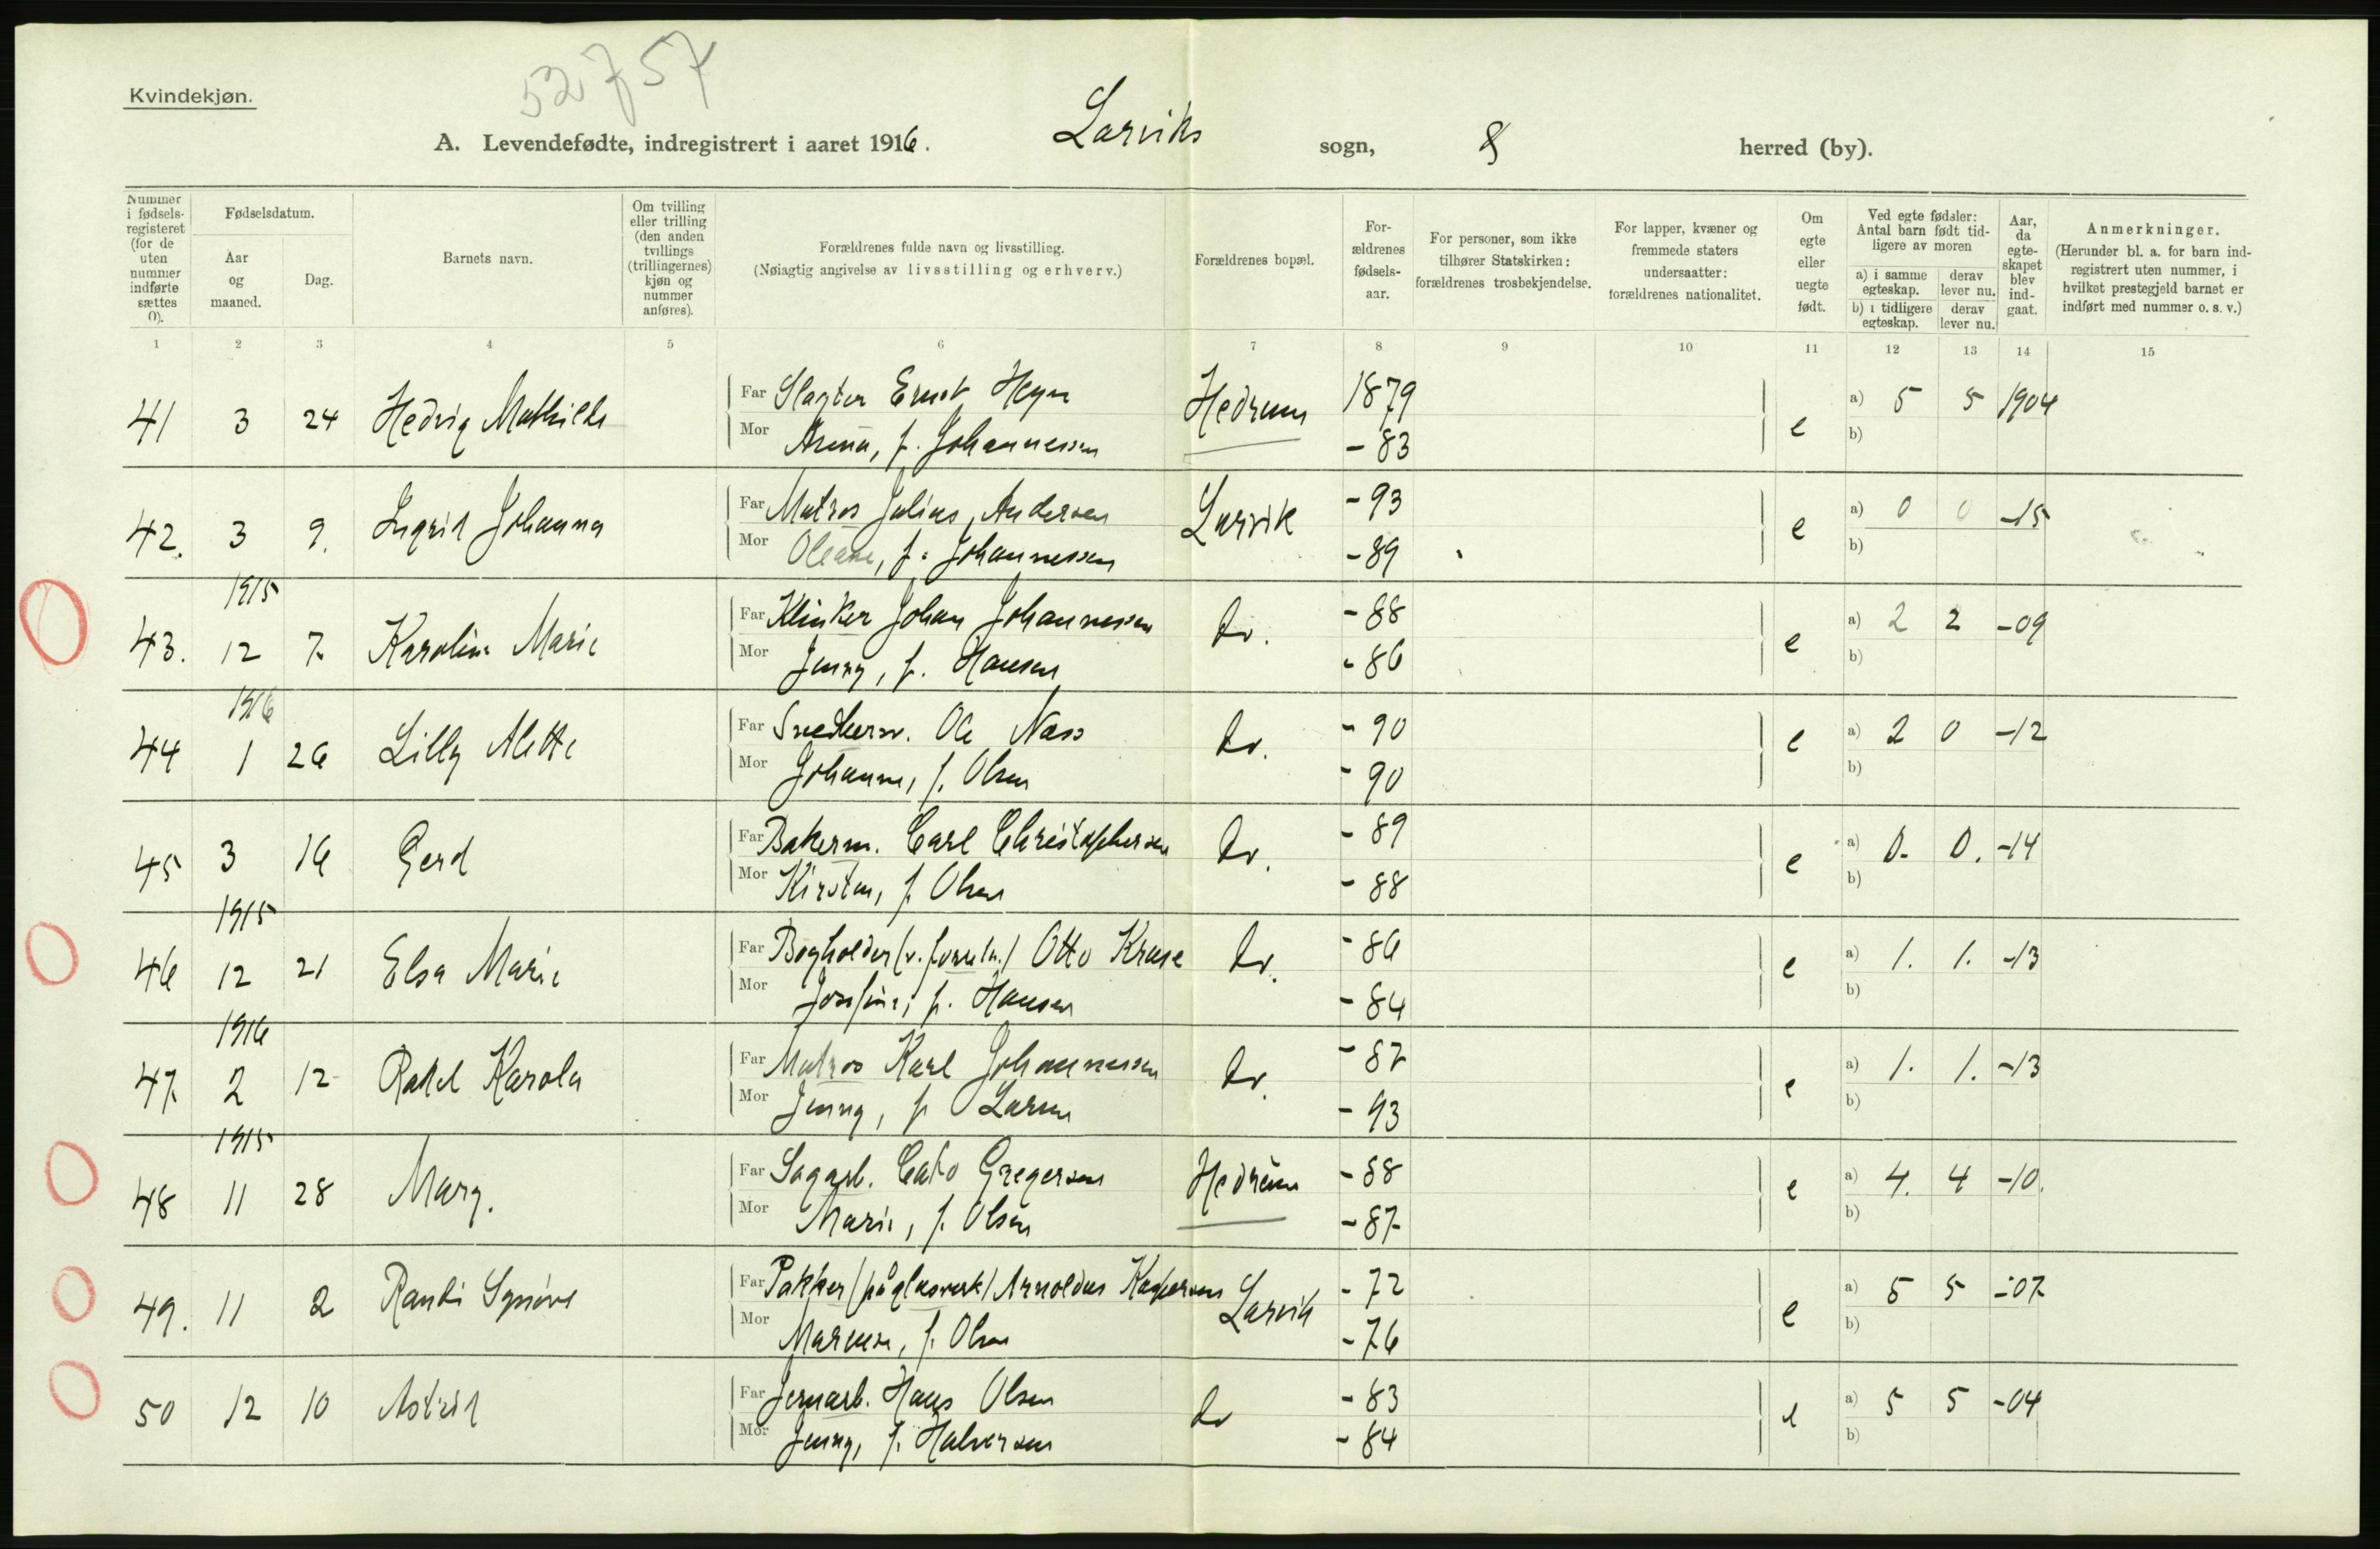 52757
Kvindekjøn.
A. Levendefødte, indregistrert i aaret 1916. Larviks sogn, 8 herred (by).
Nummer i fødsels-registeret (for de uten nummer indførte sættes 0).
Fødselsdatum.
Aar og maaned.
Dag.
Barnets navn.
Om tvilling eller trilling (den anden tvillings (trillingernes) kjøn og nummer anføres).
Forældrenes fulde navn og livsstilling.
(Nøiagtig angivelse av livsstilling og erhverv.)
Forældrenes bopæl.
For-ældrenes fødsels-aar.
For personer, som ikke tilhører Statskirken: forældrenes trosbekjendelse.
For lapper, kvæner og fremmede staters undersaatter: forældrenes nationalitet.
Om egte eller uegte født.
Ved egte fødsler: Antal barn født tid-ligere av moren
a) i samme egteskap.
derav lever nu.
b) i tidligere egteskap.
derav lever nu.
Aar, da egte-skapet blev ind-gaat.
Anmerkninger.
(Herunder bl. a. for barn ind-registrert uten nummer, i hvilket prestegjeld barnet er indført med nummer o. s. v.)
1 2 3 4 5 6 7 8 9 10 11 12 13 14 15
41 3 24 Hedvig Mathilde Far Slagter Ernst Heyn Hedrum 1879 e a) 5 5 1904
Mor Arena, f. Johannessen - 83 b)
42. 3 9. Ingrid Johanna Far Matros Julius Andersen Larvik - 93 e a) 0 0 -15
Mor Oleane, f. Johannessen - 89 b)
1915
43. 12 7. Karoline Marie Far Klinker Johan Johannessen do. - 88 e a) 2 2 -09
Mor Jenny, f. Hansen - 86 b)
1916
44 1 26 Lilly Alette Far Snedkerm. Ole Næss do. - 90 e a) 2 0 -12
Mor Johanne, f. Olsen - 90 b)
45 3 16 Gerd Far Bakerm. Carl Christophersen do. - 89 e a) 0. 0. -14
Mor Kirsten, f. Olsen - 88 b)
1915
46 12 21 Elsa Marie Far Bogholder (v. forretn.) Otto Kruse do. - 86 e a) 1. 1. -13
Mor Josefine, f. Hansen - 84 b)
1916
47. 2 12 Rakel Karola Far Matros Karl Johannessen do. - 87 e a) 1. 1. -13
Mor Jenny, f. Larsen - 93 b)
1915
48 11 28 Mary. Far Sagarb. Cato Gregersen Hedrum - 88 e a) 4. 4 -10.
Mor Marie, f. Olsen - 87 b)
49. 11 2 Randi Synøve Far Pakker (på glasverk) Arnoldus Kaspersen Larvik - 72 e a) 5 5 -07
Mor f. Olsen - 76 b)
50 12 10 Astrid Far Jernarb. Hans Olsen do - 83 e a) 5 5 -04
Mor Jenny, f. Halvorsen - 84 b)